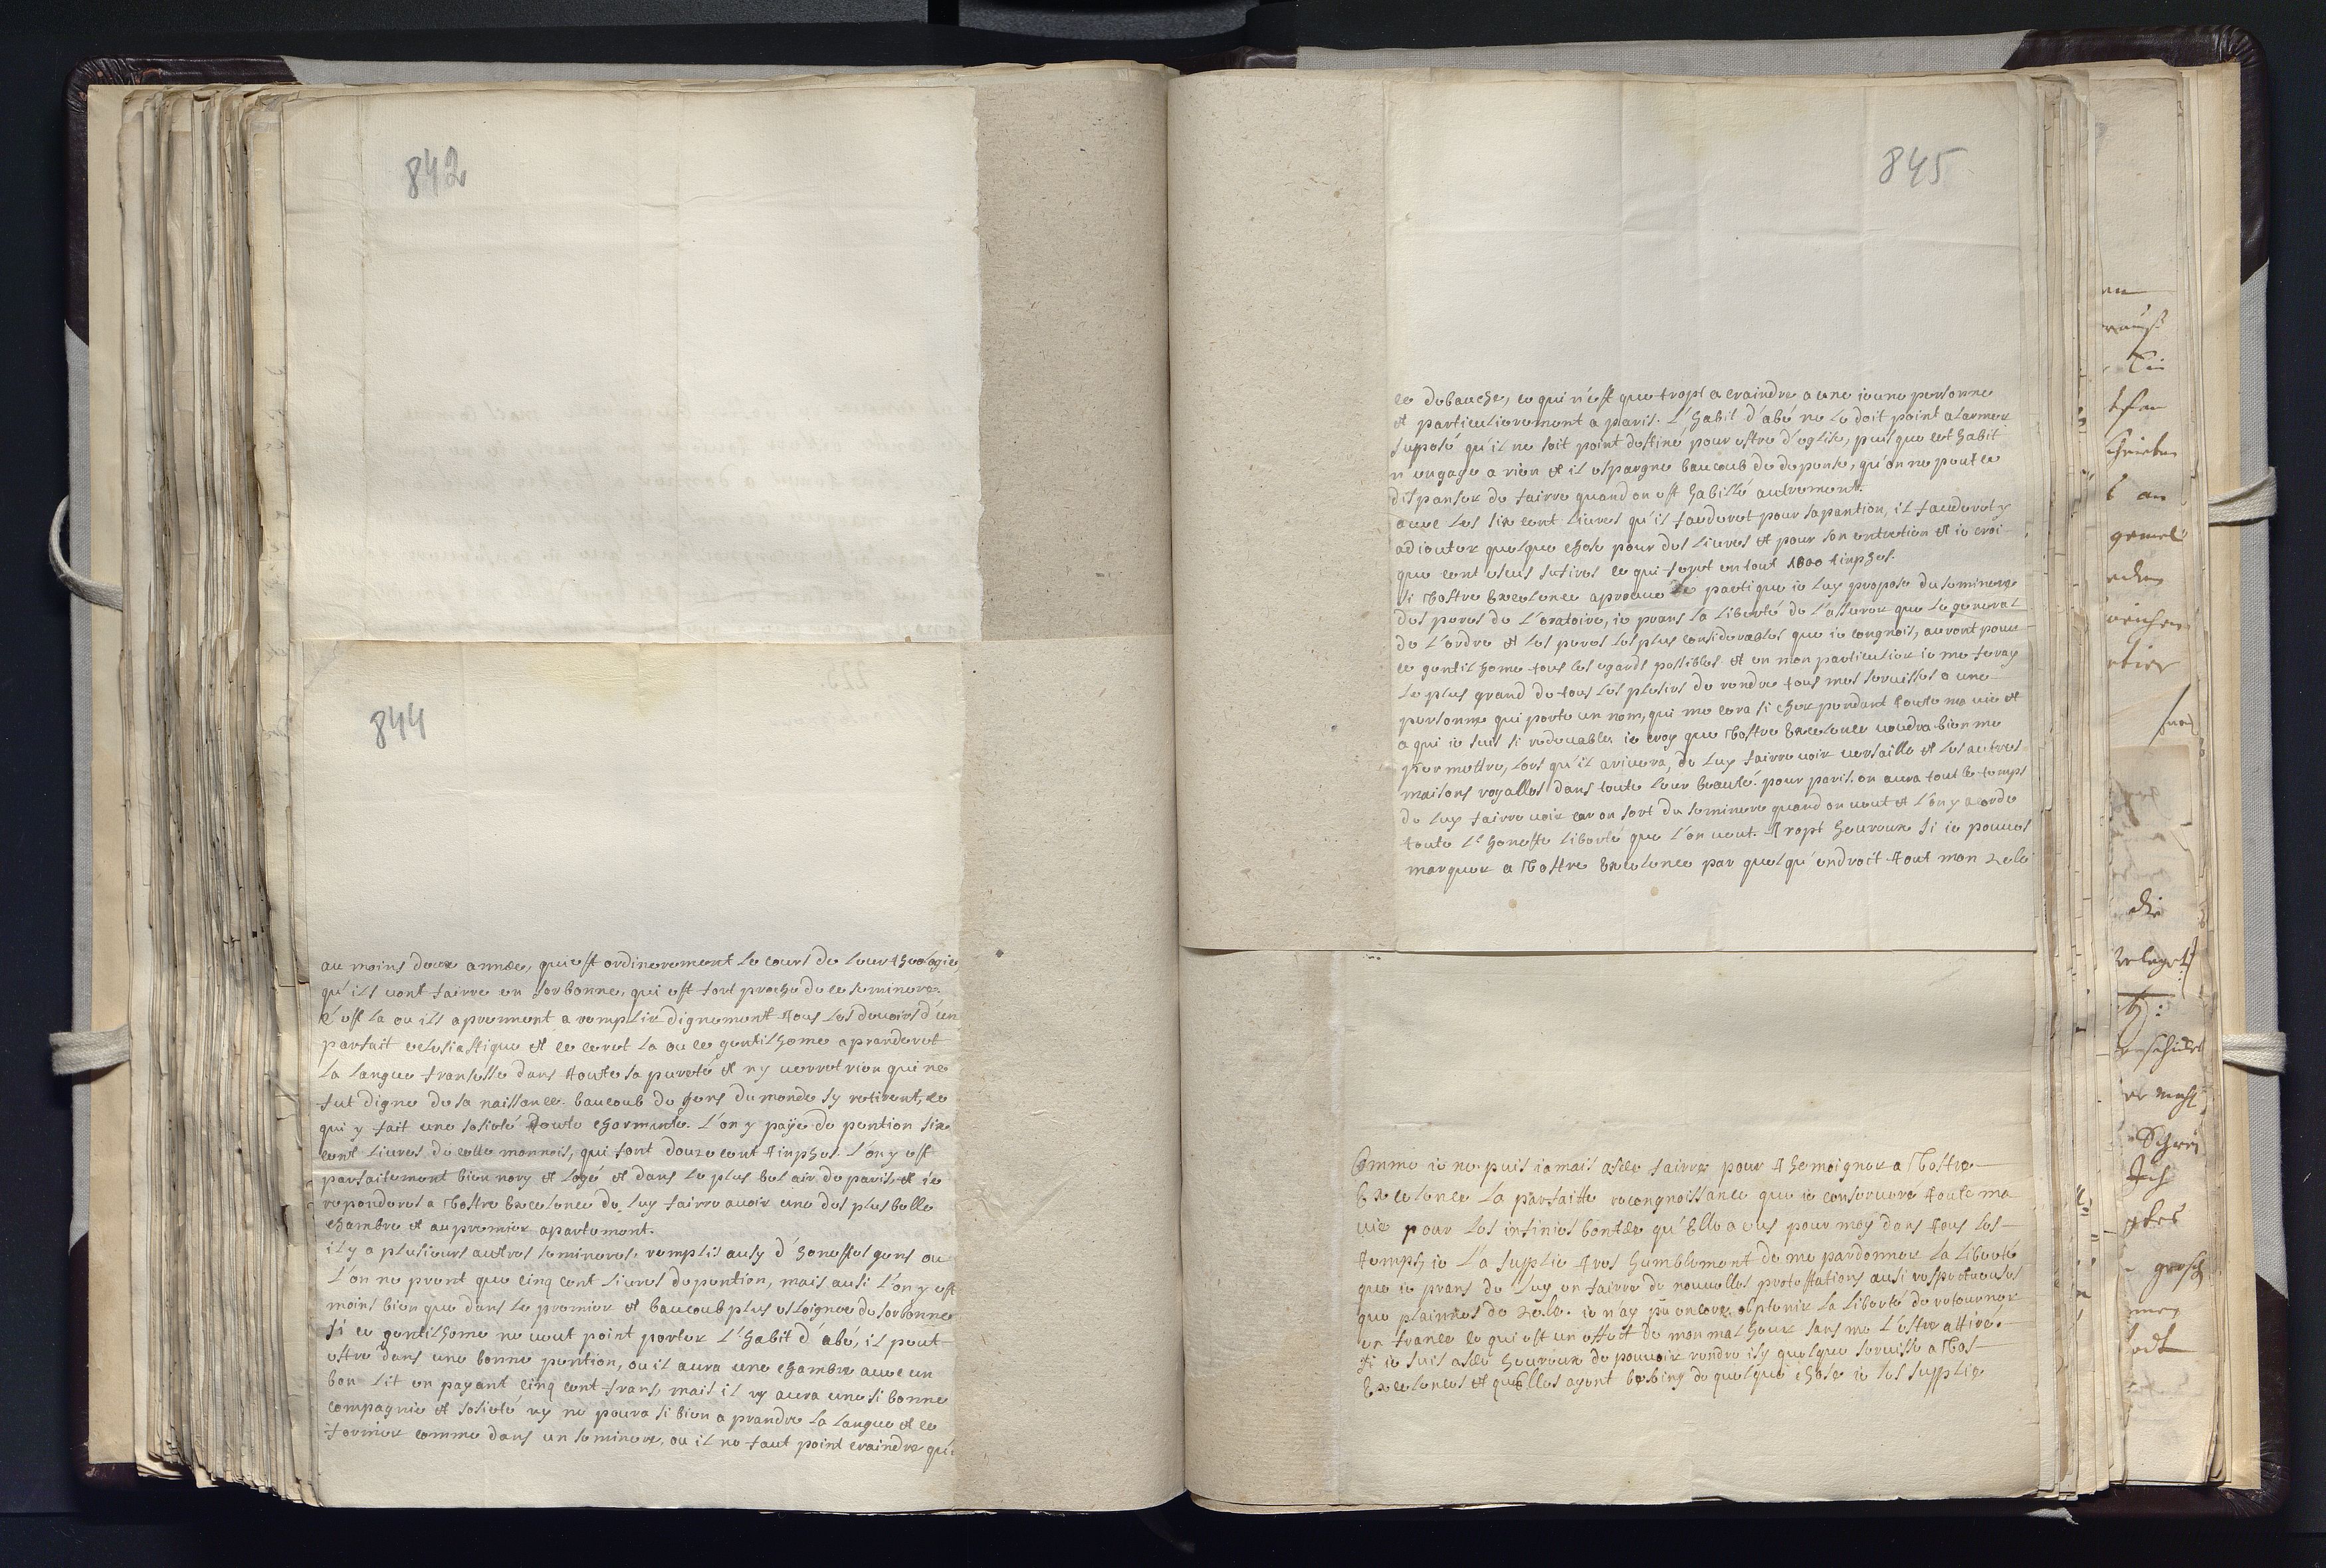 842
844
au moins deux année, qui est ordinerement le cours de leur theologie,
qu'ils vont fairre en sorbonne, qui est fort proche de ce seminere.
C'est la ou ils aprennent a remplir dignement tous les devoirs d'un
parfait eclesiastique et ce ceret la ou ce gentilhome apranderet
la langue fransesse dans toute sa pureté et ny verret rien qui ne
fut digne de sa naissance. baucoub de gens du monde sy retirent, ce
qui y fait une sosieté toute charmente. L'on y paÿe de pention six
cent livres, de cette monnois, qui font douze cent tinphes. l'on y est
parfaitement bien nory et logé et dans le plus bel air de paris, et ie
reponderes a Vostre Excelence de luy fairre avoir une des plus belle
chambre et au premier apartement.
il y a plusieurs autres semineres, remplis ausy d'honestes gens ou
l'on ne prent que cinq cent livres de pention, mais ausi l'on y est
moins bien que dans le premier et baucoub plus esloignee de sorbonne
Si ce gentilhome ne veut point porter l'habit d'abé, il peut
estre dans une bonne pention, ou il aura une chambre avec un
bon lit en payant cinq cent frans, mais il ny aura une si bonne
compagnie et sosieté ny ne poura si bien aprandre la langue et ce
former comme dans un seminere, ou il ne faut point craindre qu'i
845
ce debauche, ce qui n'est que tropt a craindre a une ieune personne
et particulierement a paris. L'habit d'abé ne le doit point alarmer
suposé qu'il ne soit point destiné pour estre d'eglise, puis que cet habit
n'engage a rien et il espargne baucoub de depense, qu'on ne peut ce
dispanser de fairre quand on est habillé autrement.
avec les six cent livres qu'il fauderet pour sa pantion, il fauderet y
adiouter quelque chose pour des livres et pour son entretien et ie croi
que cent escus sufires ce qui feret en tout 1800 tinphes.
Si Vostre Excelence aprouve le parti que ie luy propose du seminere
des peres de l'oratoire, ie prans la liberté de l'asurer que le general
de l'ordre et les peres les plus considerables que ie congnois, auront pour
ce gentilhome tous les egards possibles et en mon particulier ie me feray
le plus grand de tous les plesirs de rendre tous mes servisses a une
personne qui porte un nom, qui me cera si cher pendant toute ma vie et
a qui ie suis si redevable. ie croy que Vostre Excelence voudra bien me
permettre, lors qu'il arivera, de luy fairre voir versaille et les autres
maisons royalles dans toute leur beauté. pour paris, on aura tout le temps
de luy fairre voir car on sort du seminere quand on veut et l'on y acorde
toute l'honeste liberté que l'on veut. Tropt heureux si ie pouves
marquer a Vostre Excelence par quelqu'endroit tout mon zele
Comme ie ne puis iamais assée fairre pour themoigner a Vostre
Excelence la parfaitte recongnoissance que ie conserveré toute ma
vie pour les infinies bontée qu'Elle a eus pour moy dans tous les
temps, ie la suplie tres humblement de me pardonner la liberté
que ie prans de luy en fairre de nouvelles protestations ausi respectueuses
que plainnes de zele. ie n'ay pu encore optenir la liberté de retourner
en france ce qui est un effect de mon malheur sans me l'estre attiré.
Si ie suis assée heureux de pouvoir rendre isy quelque servisse a Vos
Excelences et qu'Elles ayent besoing de quelque chose ie les supplie